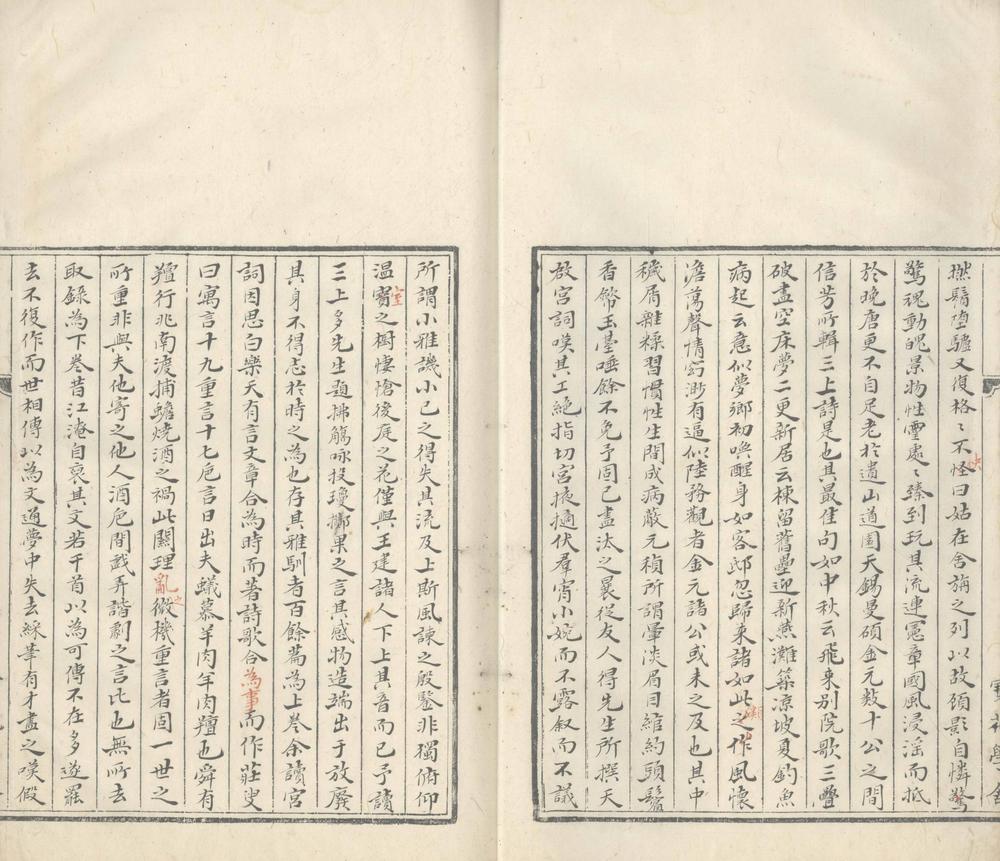 撚鬚墮驢又復格々不怪曰姑在舍旃之列以故頋影自憐驚
快
驚魂動魄景物性靈處々臻到玩其流連寃章國風浸滛而抵
於晚唐更不自足老於遺山道園天錫曼碩金元数十公之間
信芳所輯三上詩是也其最佳句如中秋云飛来别院歌三疊
破盡空床夢二更新居云棟留舊壘迎新燕灘築凉坡夏釣魚
病起云意似夢鄉初喚醒身如客邸忽歸来諸如此之作風懷
類
澹蕩聲情窈渺有逼似陸務觀者金元諸公或未之及也其中
穢屑雜糅習慣性生間成病蔽元稹所謂暈淡眉目綰約頭鬢
香幣玉臺唾餘不免予固已盡汰之晨從友人得先生所撰天
放宫詞嘆其工絶指切宫掖擿伏羣宵小婉而不露叙而不議
所謂小雅譏小己之得失其流及上斯風諫之殷鑒非獨俯仰
温寳之樹悽愴後庭之花僅與王建諸人下上其音而已予讀
室
三上多先生題拂觴咏投瓊擲果之言其感物造端出于放廢
其身不得志於時之為也存其雅馴者百餘篇為上卷余讀宫
詞因思白樂天有言文章合為時而著詩歌合為事而作莊叟
曰寓言十九重言十七巵言日出夫蟻慕羊肉羊肉羶也舜有
羶行兆南渡捕蟾燒酒之禍此關理亂之微機重言者固一世之
所重非與夫他寄之他人酒巵間戯弄諧劇之言比也無所去
取錄為下卷昔江淹自裒其文若干首以為可傳不在多遂罷
去不復作而世相傳以為文通夢中失去綵筆有才盡之嘆假